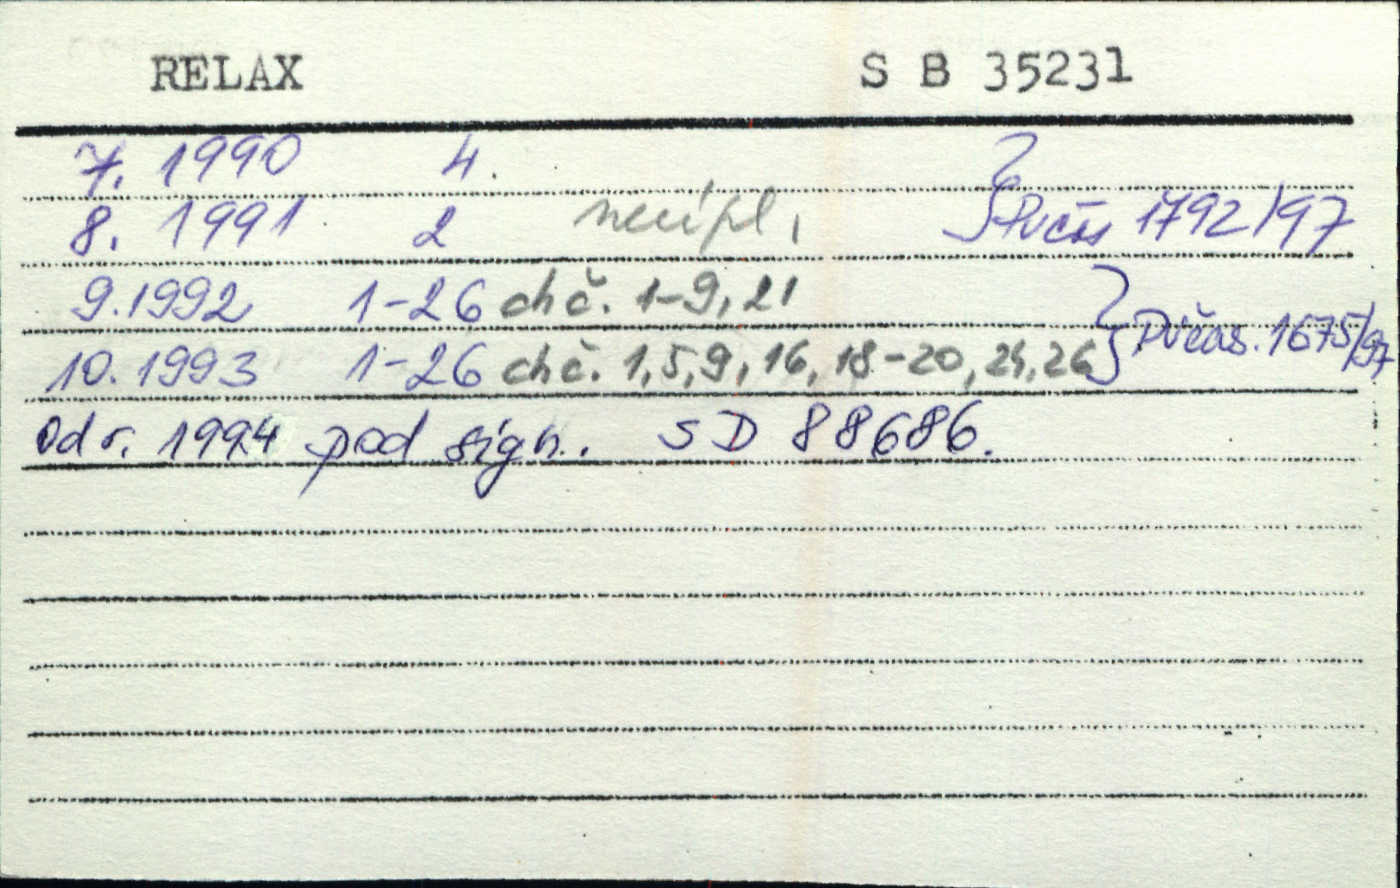 RELAX S B 35231
7. 1990 4.
8. 1991 2 neúpl. Pvčas 1792/97
9. 1992 1-26 chč. 1-9, 21
10. 1993 1-26 chč. 1, 5, 9, 16, 18-20, 24, 26 Pvčas. 1675/97
Od r. 1994 pod sign. SD 88686.